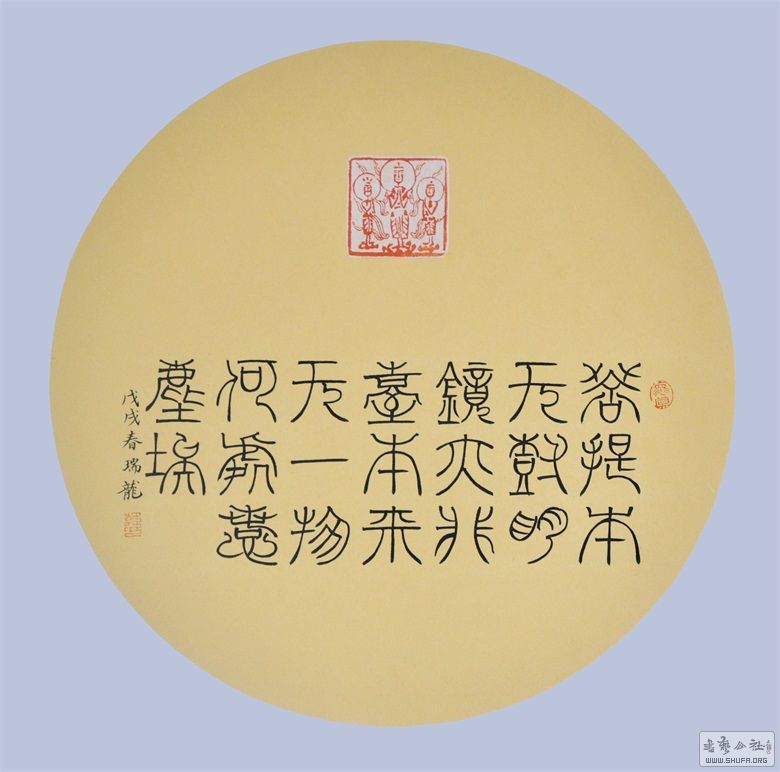 菩提本
无尌明
鏡亦非
臺本來
无一物
何處惹
塵埃
戊戌春瑞龍
書藝公社
WWW.SHUFA.ORG